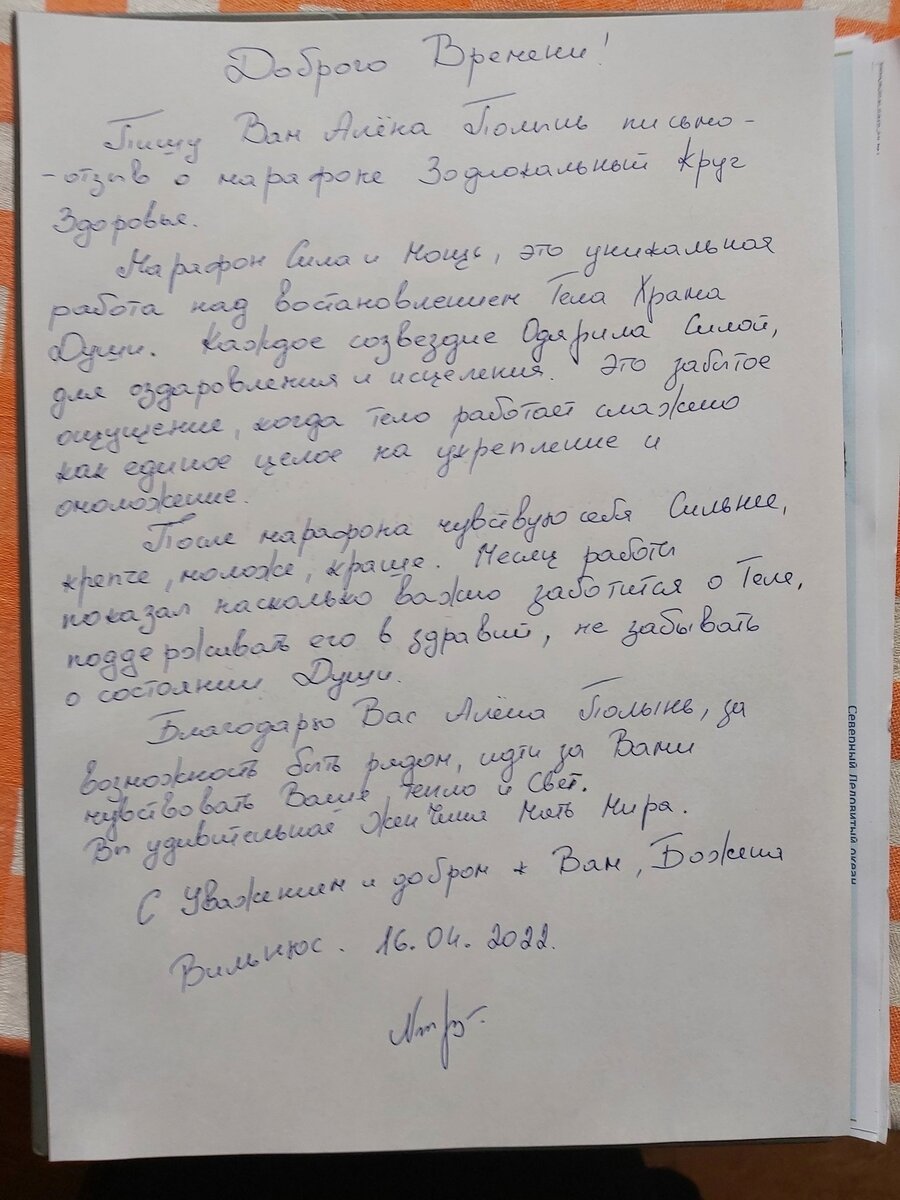 Доброго Времени!
Пишу Вам Алёна Полынь письмо-
-отзыв о марафоне Зодиокальный Круг
Здоровья.
Марафон Сила и Мощь, это уникальная
работа над востановлением Тела Храма
Души. Каждое созвездие Одярила Силой,
для оздаровления и исцеления. Это забытое
ощущение, когда тело работает слаженно
как единое целое на укрепление и
омоложение.
После марафона чувствую себя Сильнее,
крепче, моложе, краше. Месяц работы
показал насколько важно заботится о Теле,
поддерживать его в здравии, не забывать
о состоянии Души.
Благодарю Вас Алёна Полынь, за
возможность быть рядом, идти за Вами
чувствовать Ваше, тепло и Свет.
Вы удивительная Женчина Мать Мира.
С Уважением и добром к Вам, Божена
Вильнюс. 16.04.2022.
Северный Ледовитый океан